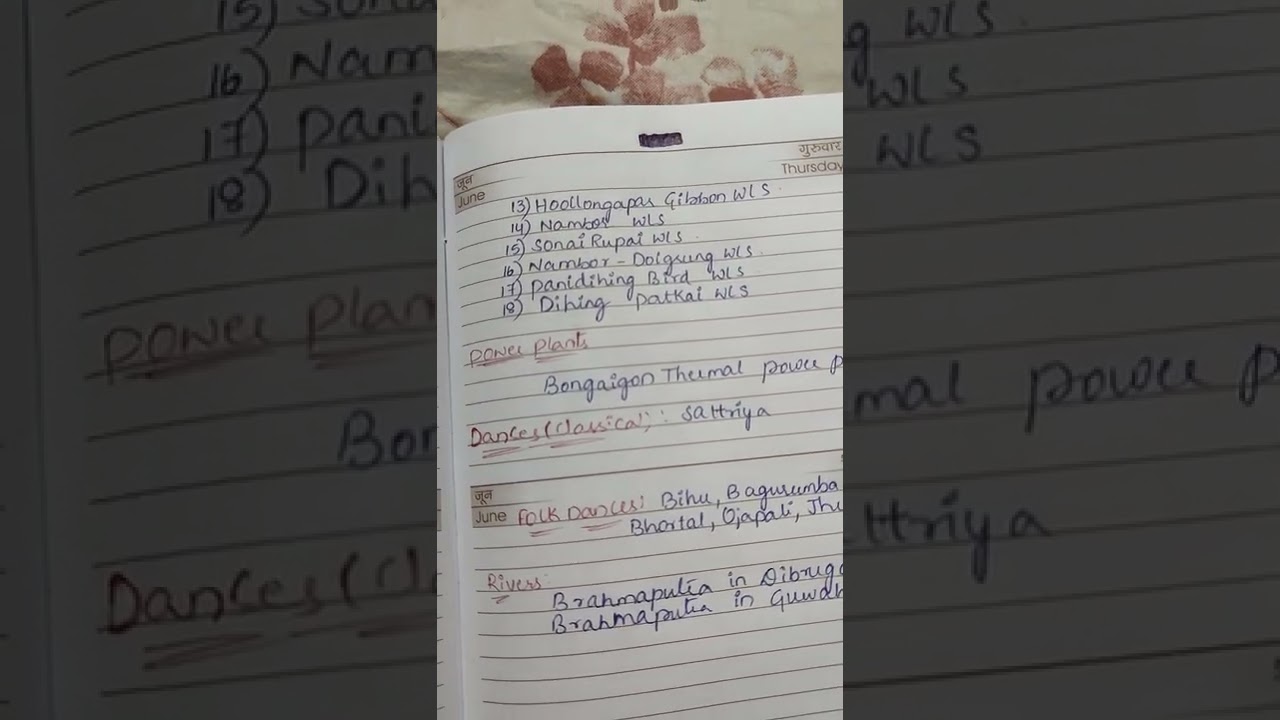 गुरुवार
Thursday
जून
June
13) Hoollongapar Gibbon WLS.
14) Nambor WLS
15) Sonai Rupai WLS.
16) Nambor - Doigrung WLS.
17) Panidihing Bird WLS
18) Dihing Patkai WLS
Power Plants
Bongaigon Thermal Power P
Dances (classical) : Sattriya
जून
June
Folk Dances: Bihu, Bagurumba
Bhortal, Ojapali, Jhu
Rivers:
Brahmaputra in Dibruga
Brahmaputra in Guwah